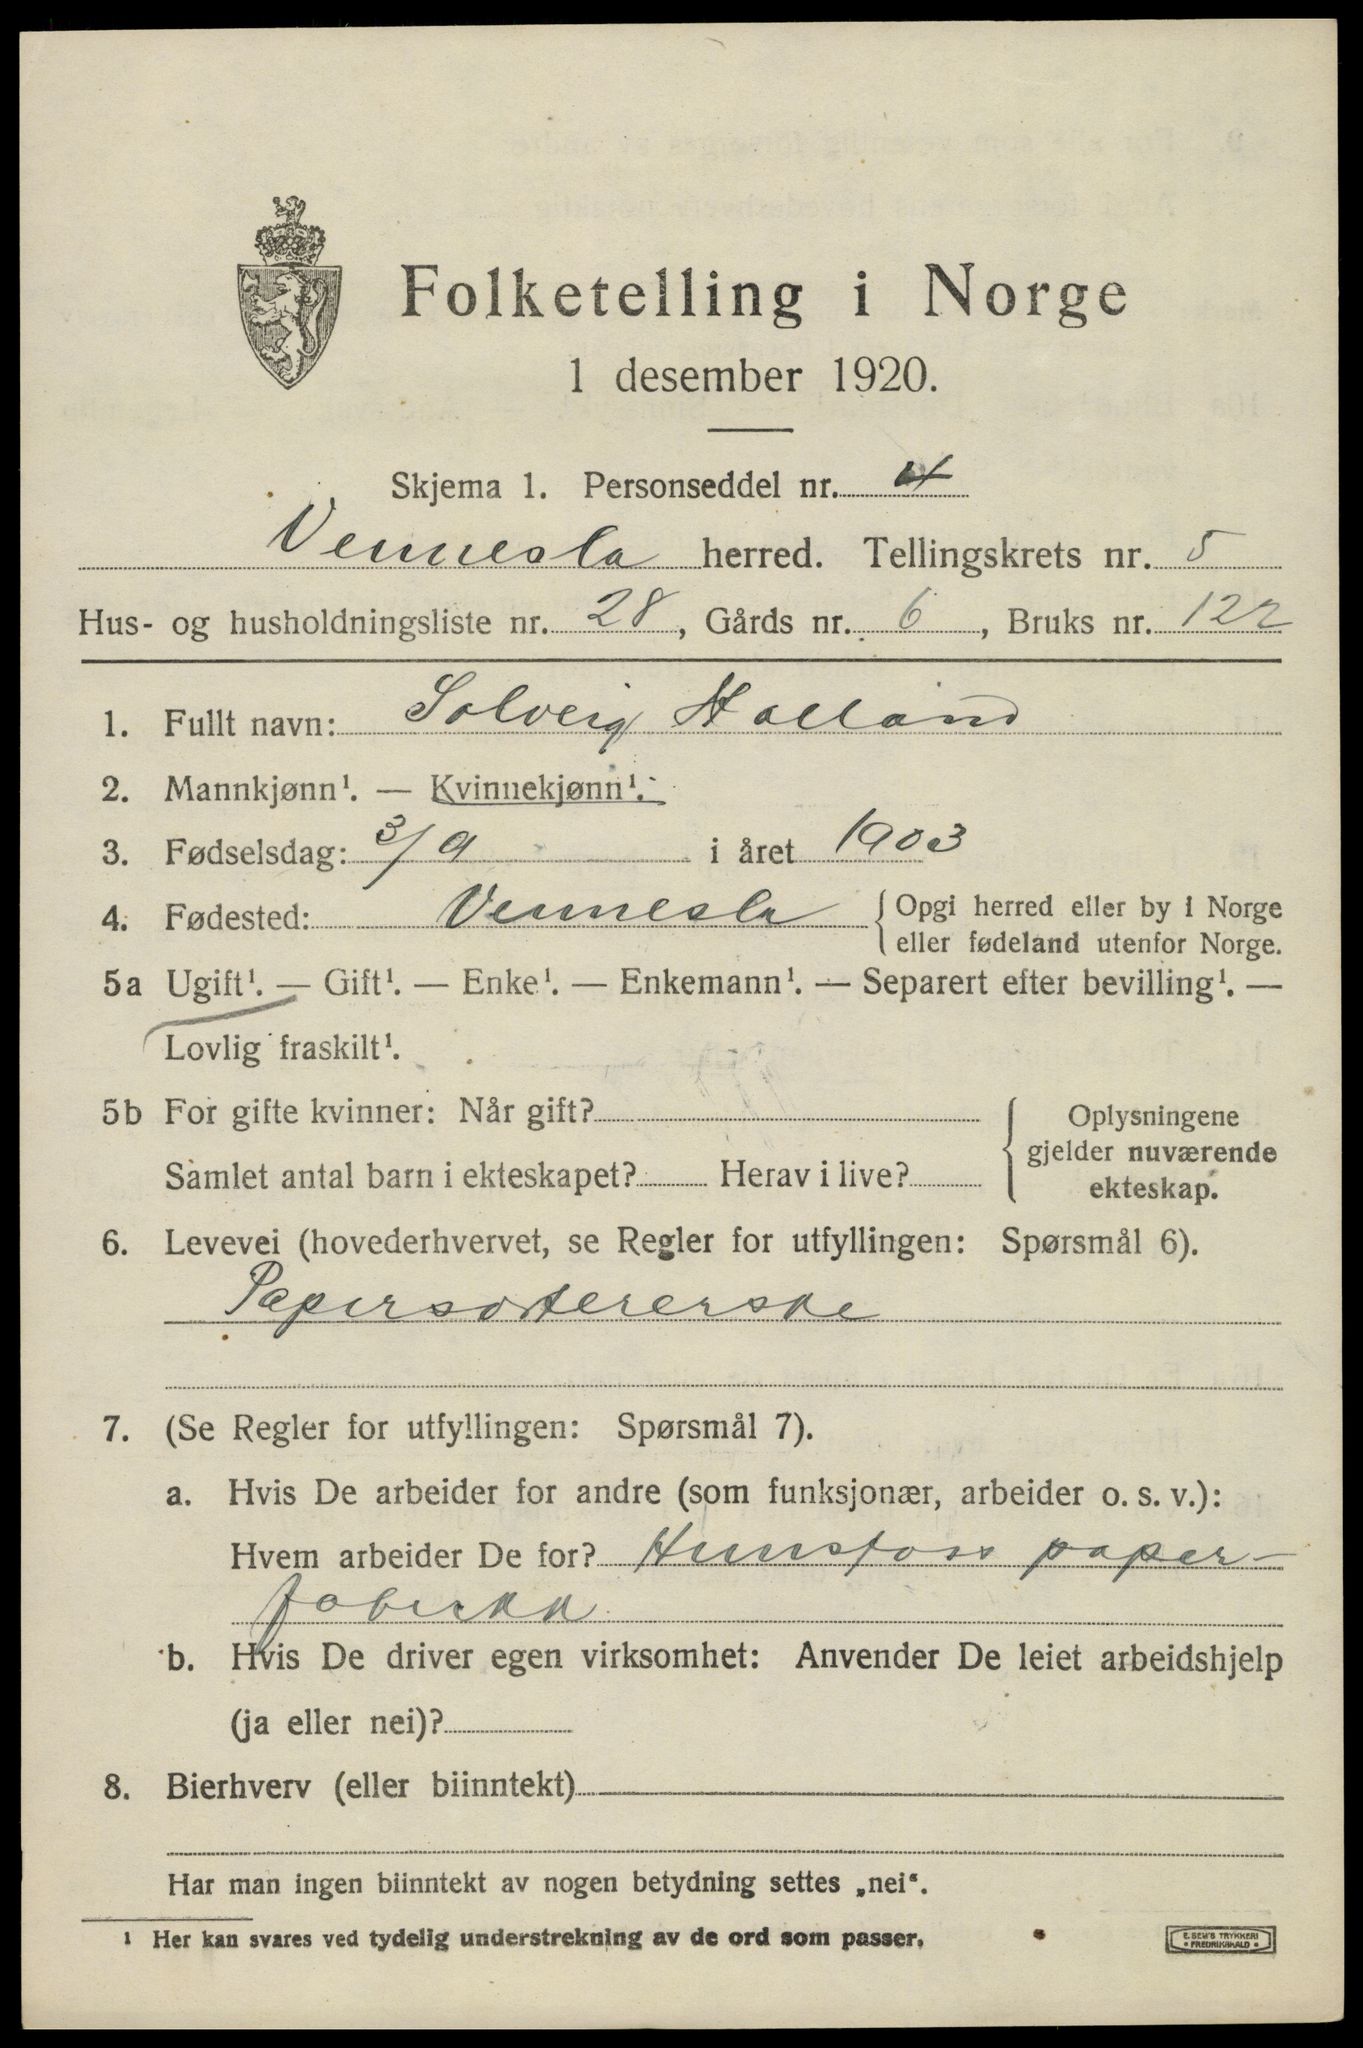 Folketelling i Norge
1 desember 1920.
Skjema 1. Personseddel nr. 4
Vennesla herred. Tellingskrets nr. 5
Hus- og husholdningsliste nr. 28, Gårds nr. 6, Bruks nr. 122
1. Fullt navn: Solveig Halland
2. Mannkjønn¹. — Kvinnekjønn¹.
3. Fødselsdag: 3/9 i året 1903
4. Fødested: Vennesla { Opgi herred eller by i Norge
eller fødeland utenfor Norge.
5a Ugift¹. — Gift¹. — Enke¹. — Enkemann¹. — Separert efter bevilling¹. —
Lovlig fraskilt¹.
5b For gifte kvinner: Når gift?
Samlet antal barn i ekteskapet? Herav i live?
Oplysningene
gjelder nuværende
ekteskap.
6. Levevei (hovederhvervet, se Regler for utfyllingen: Spørsmål 6).
Papersortererske
7. (Se Regler for utfyllingen: Spørsmål 7).
a. Hvis De arbeider for andre (som funksjonær, arbeider o. s. v.):
Hvem arbeider De for? Hunsfoss paper-
fabrikk
b. Hvis De driver egen virksomhet: Anvender De leiet arbeidshjelp
(ja eller nei)?
8. Bierhverv (eller biinntekt)
Har man ingen biinntekt av nogen betydning settes „nei“.
¹ Her kan svares ved tydelig understrekning av de ord som passer.
E. SEM'S TRYKKERI
• FREDRIKSHALD •